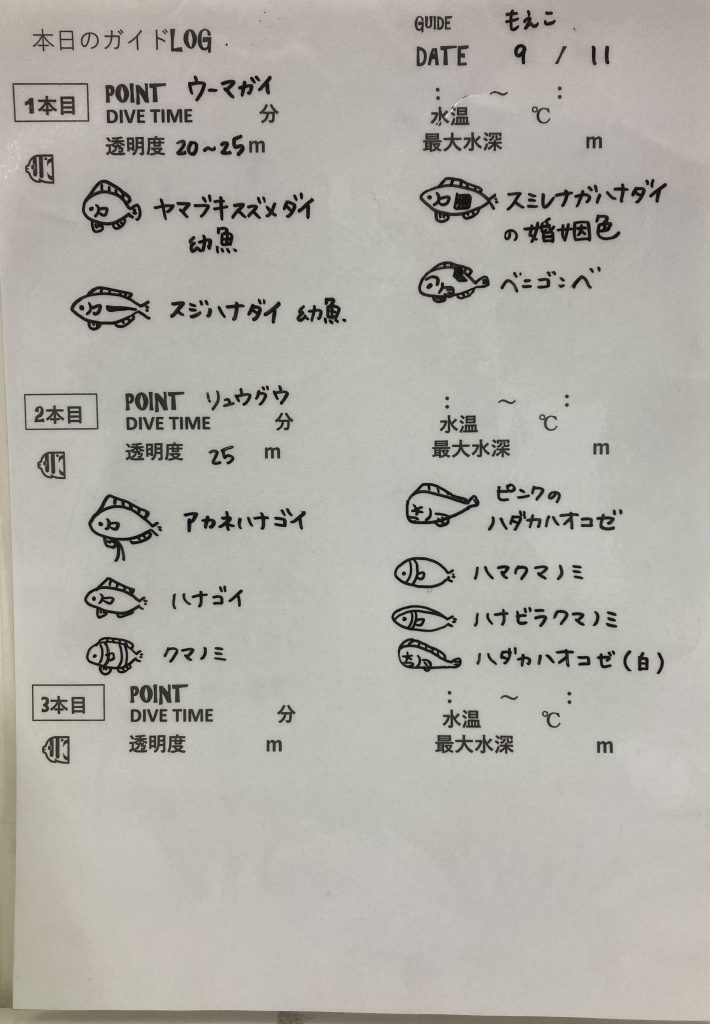 本日のガイドLOG
GUIDE もえこ
DATE 9 / 11
1本目 POINT ウーマガイ : ～ :
DIVE TIME 分 水温 ℃
透明度 20～25m 最大水深 m
ヤマブキスズメダイ
幼魚
スミレナガハナダイ
の婚姻色
スジハナダイ 幼魚.
ベニゴンベ
2本目 POINT リュウグウ : ～ :
DIVE TIME 分 水温 ℃
透明度 25 m 最大水深 m
アカネハナゴイ
ハナゴイ
クマノミ
ピンクの
ハダカハオコゼ
ハマクマノミ
ハナビラクマノミ
ハダカハオコゼ(白)
3本目 POINT : ～ :
DIVE TIME 分 水温 ℃
透明度 m 最大水深 m